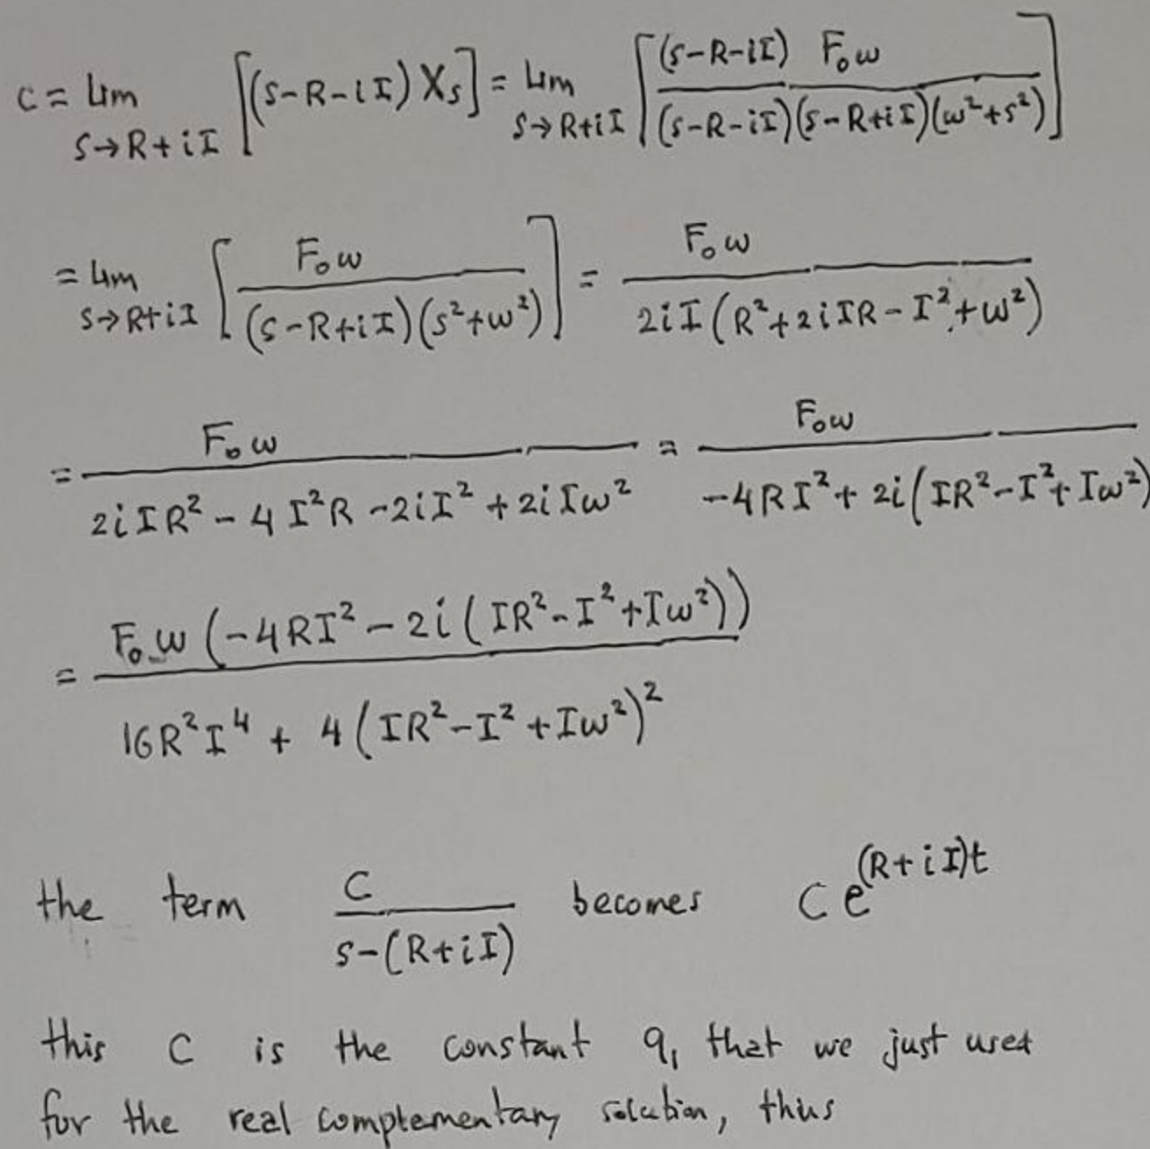 c = lim s→R+iI [(s-R-iI) Xs] = lim s→R+iI [(s-R-iI) F₀ω / (s-R-iI)(s-R+iI)(ω²+s²)]
= lim s→R+iI [F₀ω / (s-R+iI)(s²+ω²)] = F₀ω / 2iI(R²+2iIR-I²+ω²)
= F₀ω / 2iIR² - 4I²R - 2iI² + 2iIω² = F₀ω / -4RI² + 2i(IR²-I²+Iω²)
= F₀ω(-4RI² - 2i(IR²-I²+Iω²)) / 16R²I⁴ + 4(IR²-I²+Iω²)²
the term c / s-(R+iI) becomes c e^(R+iI)t
this c is the constant q₁ that we just used
for the real complementary solution, thus